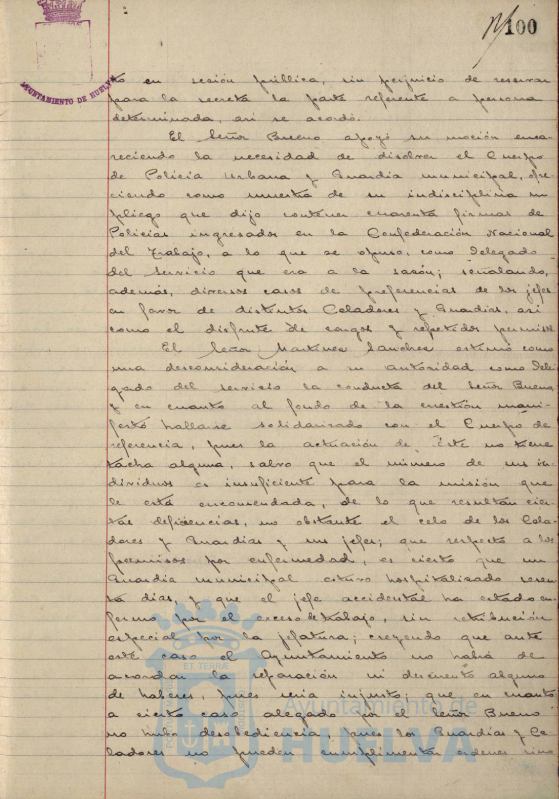 100
AYUNTAMIENTO DE HUELVA
to en sesión pública, sin perjuicio de reservar
para la secreta la parte referente a persona
determinada, así se acordó.
El Señor Bueno apoyó su moción enca-
reciendo la necesidad de disolver el Cuerpo
de Policía Urbana y Guardia municipal, ofre-
ciendo como muestra de su indisciplina un
pliego que dijo contener cuarenta firmas de
Policías ingresados en la Confederación Nacional
del Trabajo, a lo que se opuso, como Delegado
del servicio que era a la sazón; señalando,
además, diversos casos de preferencias de los jefes
en favor de distintos Celadores y Guardias, así
como el disfrute de cargos y repetidos
El Señor Martínez Sánchez estimó como
una desconsideración a su autoridad como Dele-
gado del servicio la conducta del Señor Bueno
y en cuanto al fondo de la cuestión mani-
festó hallarse solidarizado con el Cuerpo de
referencia, pues la actuación de éste no tiene
tacha alguna, salvo que el número de sus in-
dividuos es insuficiente para la misión que
le está encomendada, de lo que resultan cier-
tas deficiencias, no obstante el celo de los Cela-
dores y Guardias y sus jefes; que respecto a los
permisos por enfermedad, es cierto que un
Guardia municipal estuvo hospitalizado sesen-
ta días, y que el jefe accidental ha estado en-
fermo por el exceso de trabajo, sin retribución
especial por la jefatura; creyendo que ante
este caso el Ayuntamiento no había de
acordar la separación ni descuento alguno
de haberes, pues sería injusto; que en cuanto
a cierto caso alegado por el Señor Bueno
no hubo desobediencia, pues los Guardias y Ce-
ladores no pueden cumplimentar órdenes sino
Ayuntamiento de
HUELVA